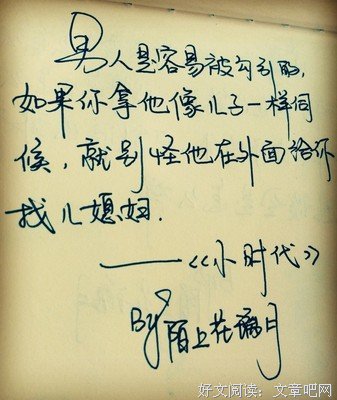 男人是容易被勾引的,
如果你拿他像儿子一样伺
候,就别怪他在外面给你
找儿媳妇.
——《小时代》
By 陌上花满月
好文阅读:文章吧网